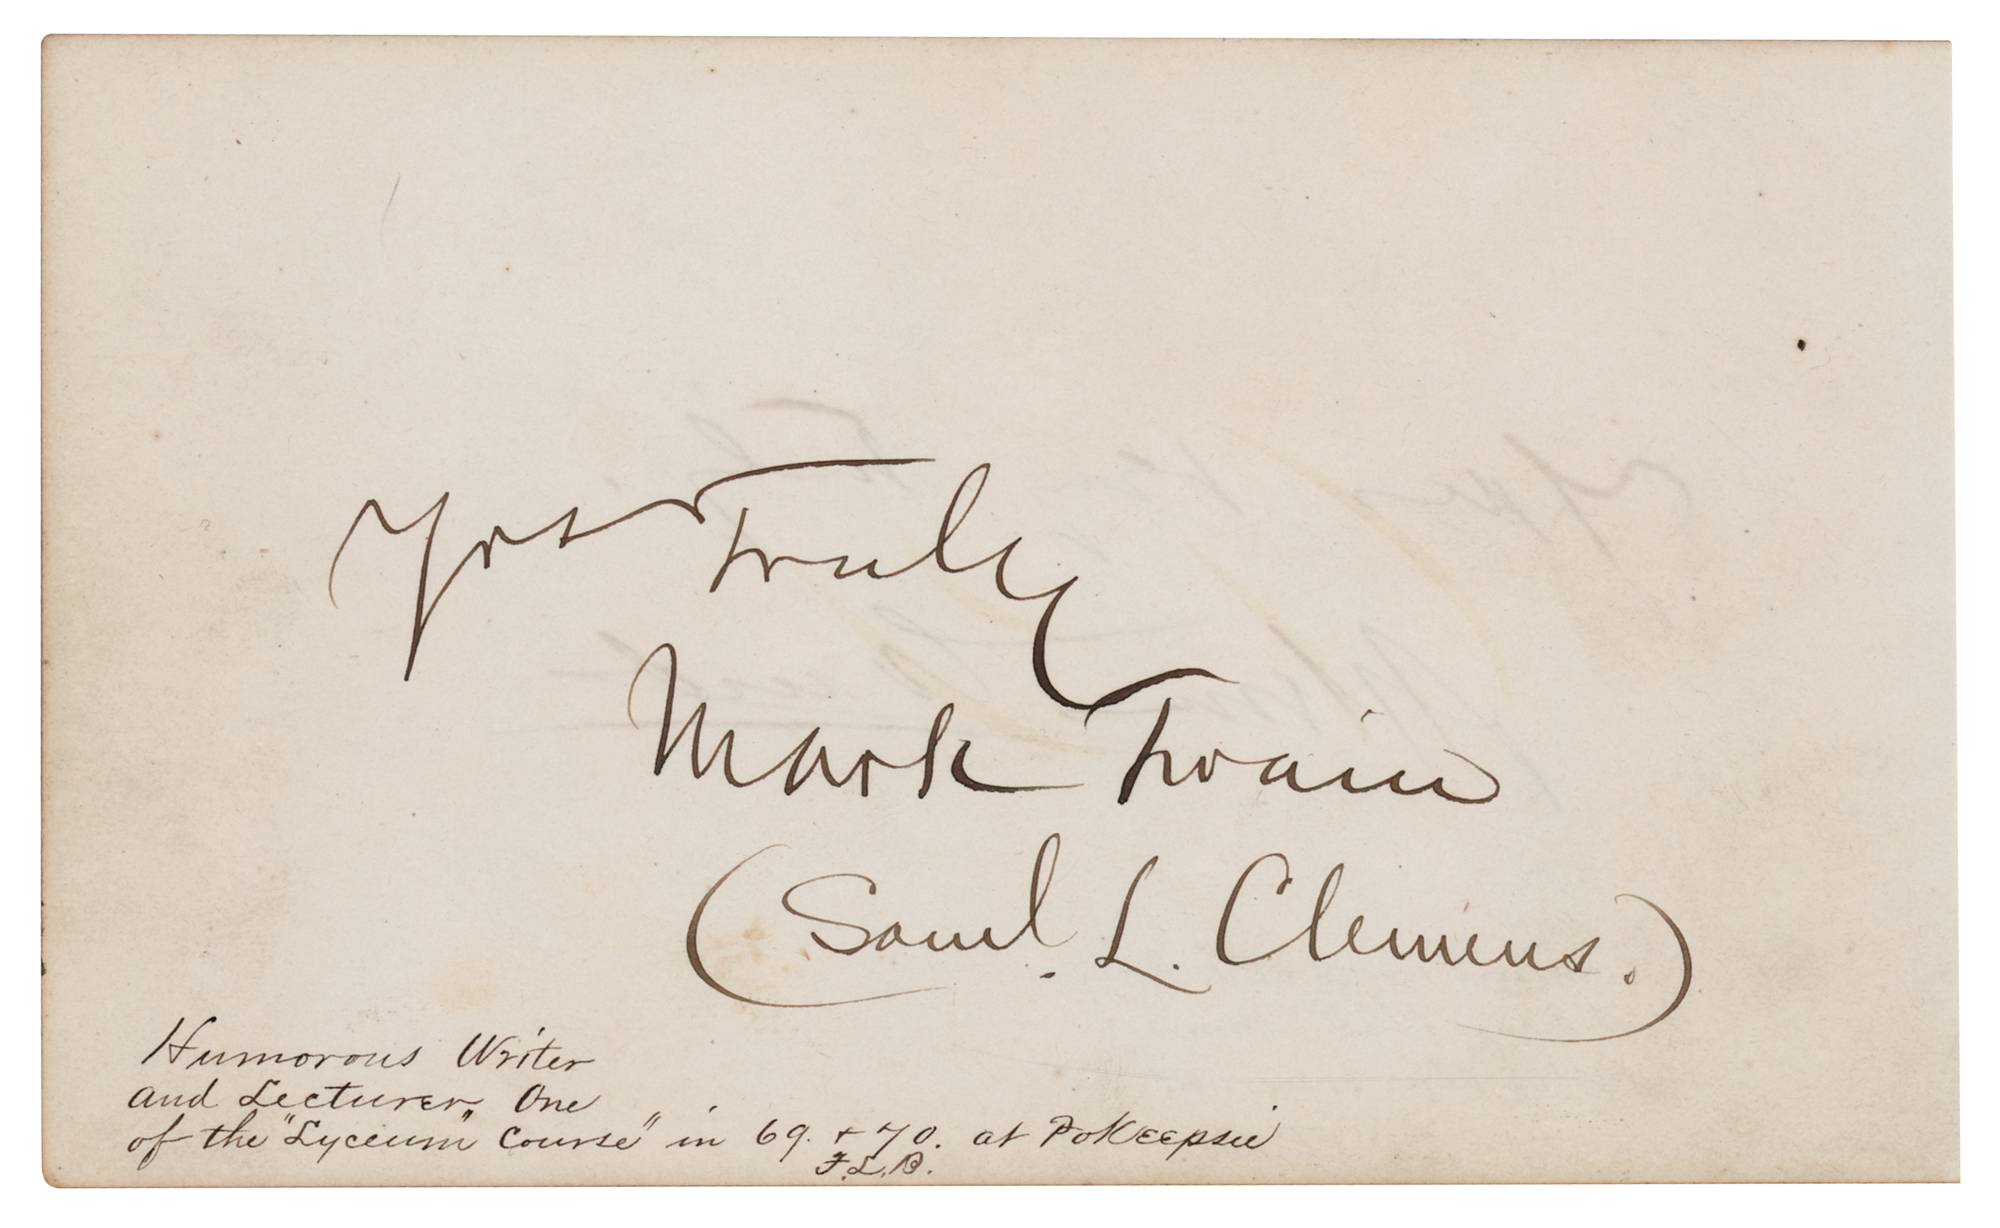 Yrs Truly
Mark Twain
(Saml. L. Clemens.)
Humorous Writer
and Lecturer, One
of the "Lyceum" Course" in 69. + 70. at PoKeepsie
F.L.B.